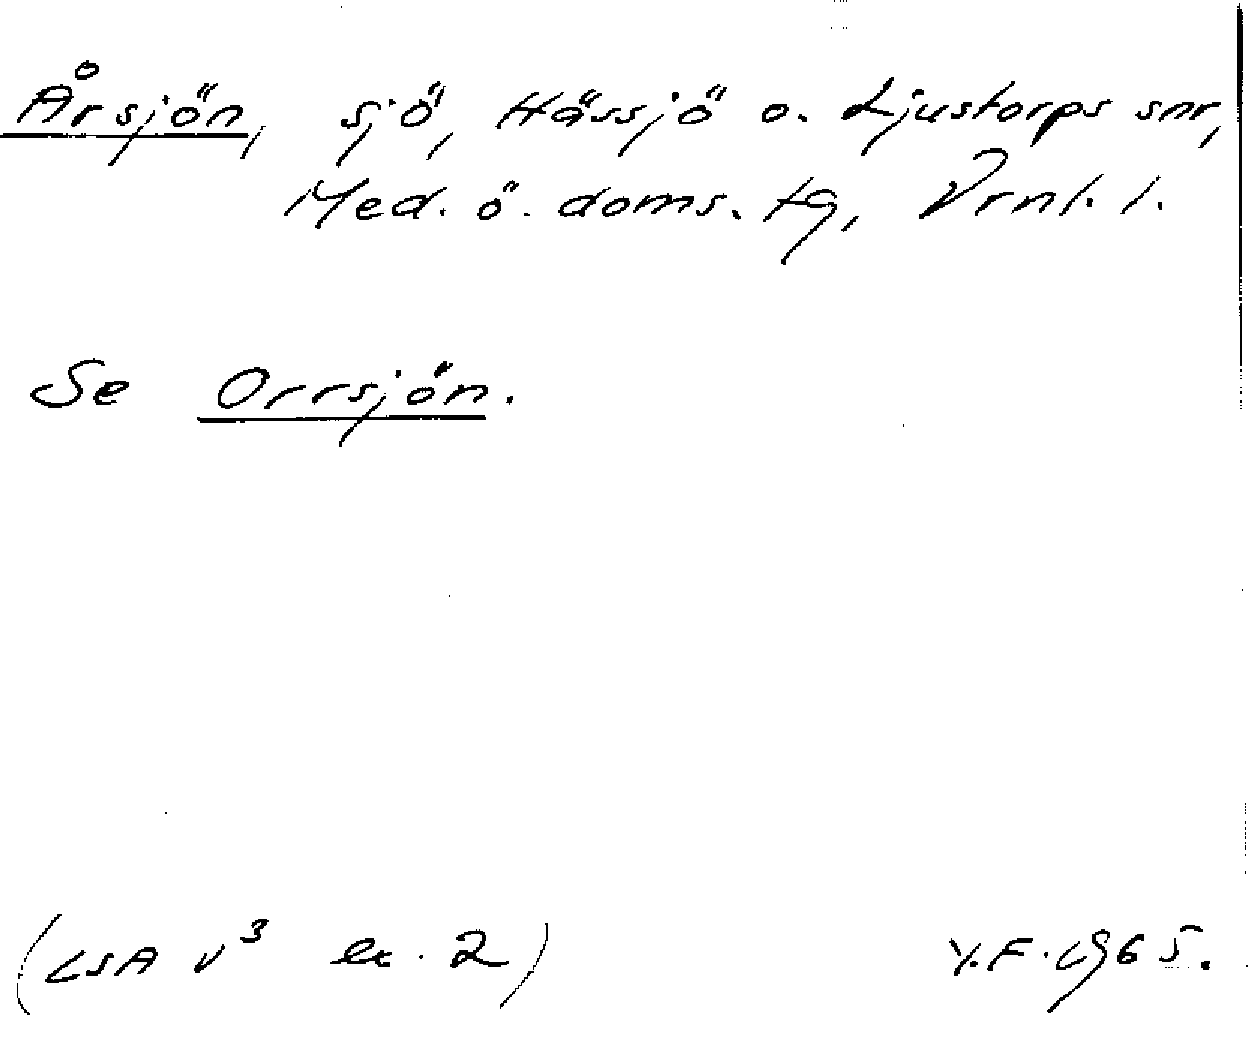 Årsjön, sjö, Hässjö o. Ljustorps snr,
Med. ö. doms. tg, Vrnl. l.
Se Orrsjön.
(LSA v³ ex. 2)
Y.F. 1965.